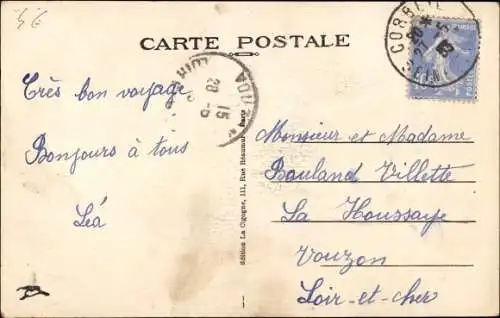 5€
CARTE POSTALE
CORBEIL
Très bon voyage
Bonjours à tous
Léa
15
28-5
Edition La Cigogne, 111, Rue Réaumur, Paris
Monsieur et Madame
Bauland Villette
La Houssaye
Vouzon
Loir-et-cher